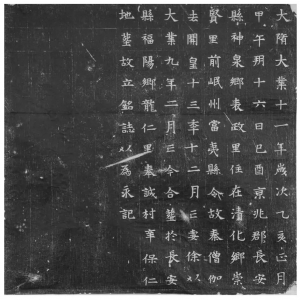 大隋大業十一年歲次乙亥正月
甲午朔十六日己酉京兆郡長安
縣神泉鄉表政里住在清化鄉崇
賢里前岷州當夷縣令故秦僧伽
去開皇十三季十二月亡妻徐以
大業九年二月亡今合塟於長安
縣福陽鄉龍仁里裴誠村保仁
地塟故立銘誌以為永記